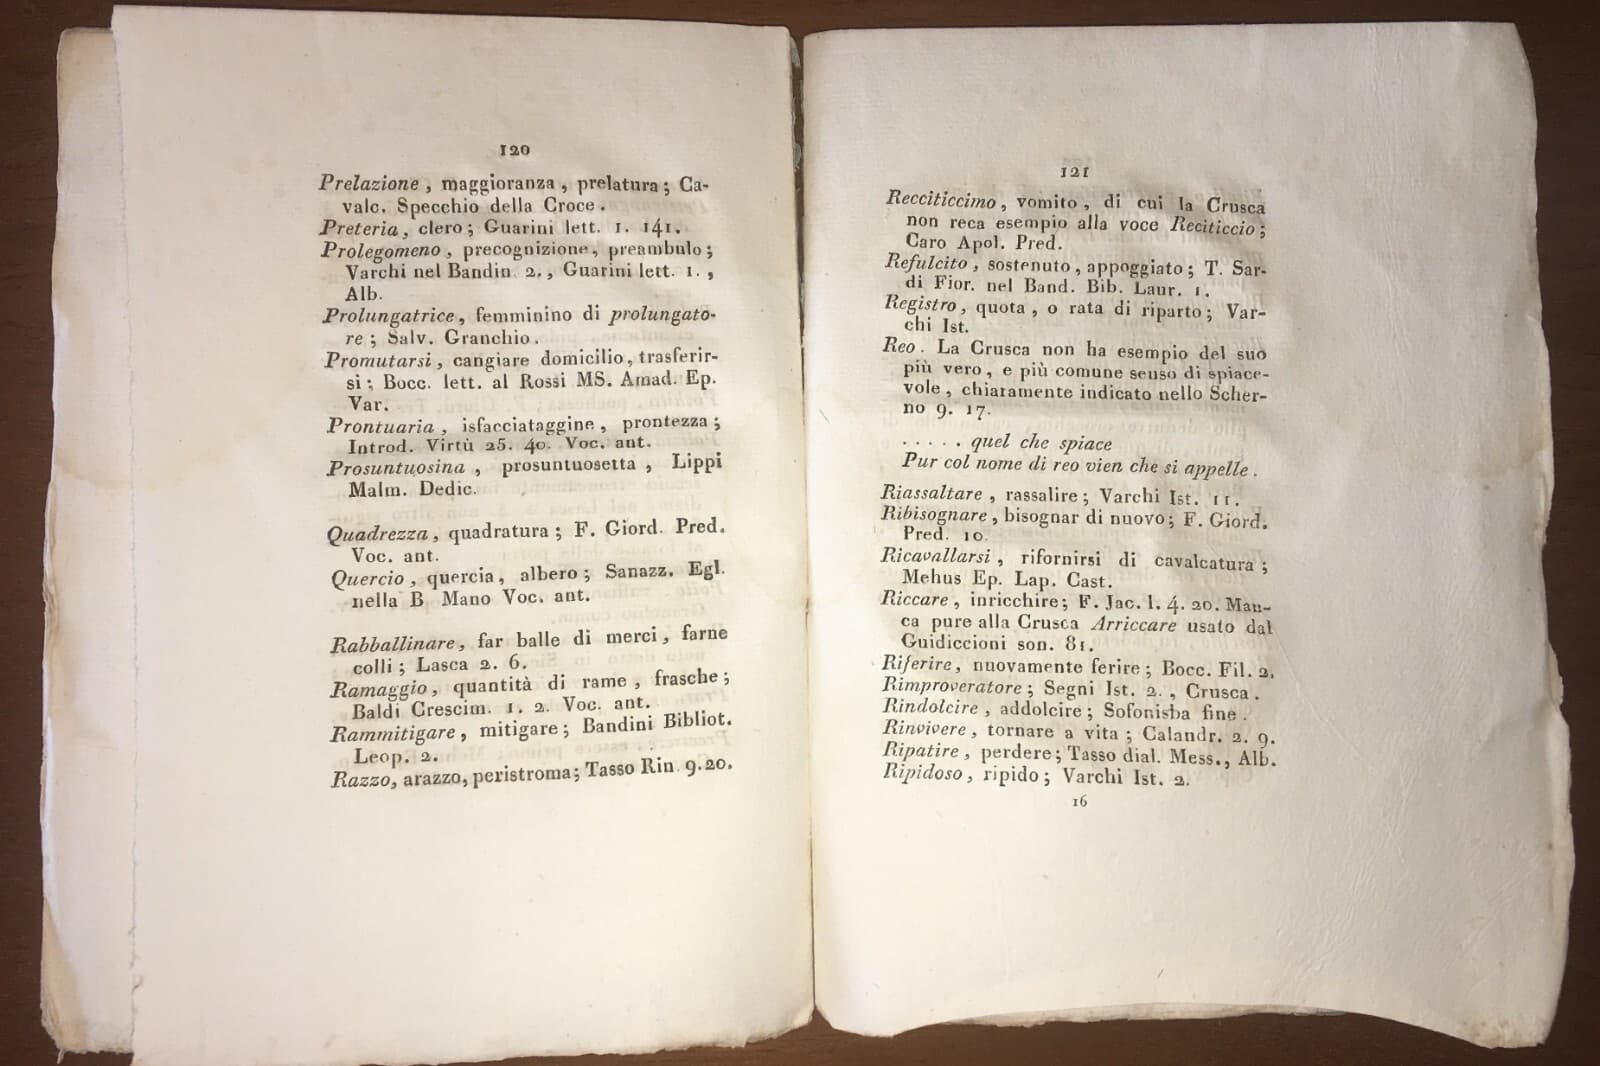 120
Prelazione, maggioranza, prelatura; Ca-
valc. Specchio della Croce.
Preteria, clero; Guarini lett. 1. 141.
Prolegomeno, precognizione, preambulo;
Varchi nel Bandin. 2., Guarini lett. 1.,
Alb.
Prolungatrice, femminino di prolungato-
re; Salv. Granchio.
Promutarsi, cangiare domicilio, trasferir-
si; Bocc. lett. al Rossi MS. Amad. Ep.
Var.
Prontuaria, isfacciataggine, prontezza;
Introd. Virtù 25. 40. Voc. ant.
Prosuntuosina, prosuntuosetta, Lippi
Malm. Dedic.
Quadrezza, quadratura; F. Giord. Pred.
Voc. ant.
Quercio, quercia, albero; Sanazz. Egl.
nella B Mano Voc. ant.
Raballinare, far balle di merci, farne
colli; Lasca 2. 6.
Ramaggio, quantità di rame, frasche;
Baldi Crescim. 1. 2. Voc. ant.
Rammitigare, mitigare; Bandini Bibliot.
Leop. 2.
Razzo, arazzo, peristroma; Tasso Rin. 9.20.
121
Recciticcimo, vomito, di cui la Crusca
non reca esempio alla voce Reciticcio;
Caro Apol. Pred.
Refulcito, sostenuto, appoggiato; T. Sar-
di Fior. nel Band. Bib. Laur. 1.
Registro, quota, o rata di riparto; Var-
chi Ist.
Reo. La Crusca non ha esempio del suo
più vero, e più comune senso di spiace-
vole, chiaramente indicato nello Scher-
no 9. 17.
. . . . . quel che spiace
Pur col nome di reo vien che si appelle.
Riassaltare, rassalire; Varchi Ist. 11.
Ribisognare, bisognar di nuovo; F. Giord.
Pred. 10.
Ricavallarsi, rifornirsi di cavalcatura;
Mehus Ep. Lap. Cast.
Riccare, inricchire; F. Jac. l. 4. 20. Man-
ca pure alla Crusca Arriccare usato dal
Guidiccioni son. 81.
Riferire, nuovamente ferire; Bocc. Fil. 2.
Rimproveratore; Segni Ist. 2., Crusca.
Rindolcire, addolcire; Sofonisba fine.
Rinvivere, tornare a vita; Calandr. 2. 9.
Ripatire, perdere; Tasso dial. Mess., Alb.
Ripidoso, ripido; Varchi Ist. 2.
16